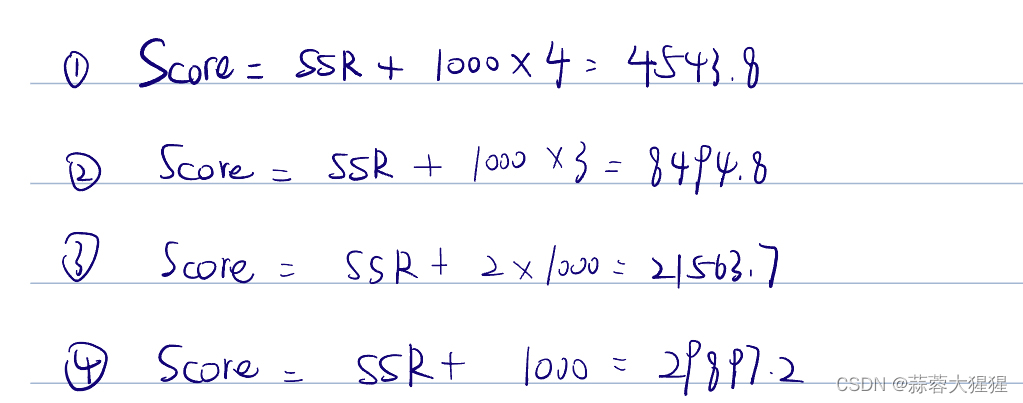 ① Score = SSR + 1000 × 4 = 4543.8
② Score = SSR + 1000 × 3 = 8494.8
③ Score = SSR + 2 × 1000 = 21563.7
④ Score = SSR + 1000 = 29897.2
CSDN @蒜蓉大猩猩